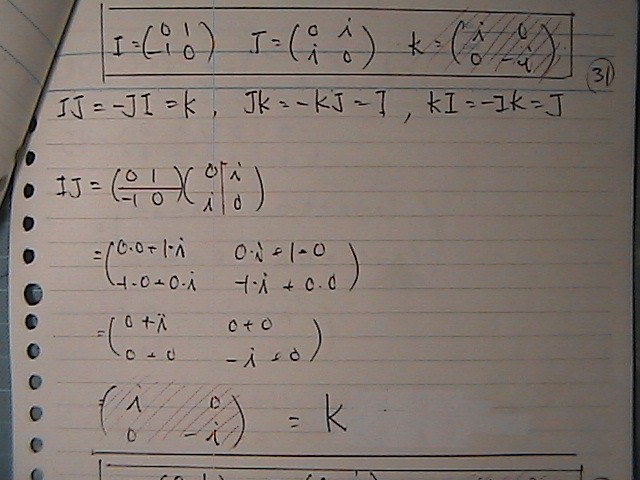 I = (0 1 -1 0) J = (0 i i 0) k = (i 0 0 -i)
31
IJ = -JI = k, Jk = -kJ = I, kI = -Ik = J
IJ = (0 1 -1 0)(0 i i 0)
= (0·0+1·i 0·i+1·0
-1·0+0·i -1·i+0·0)
= (0+i 0+0
0+0 -i+0)
= (i 0
0 -i) = k